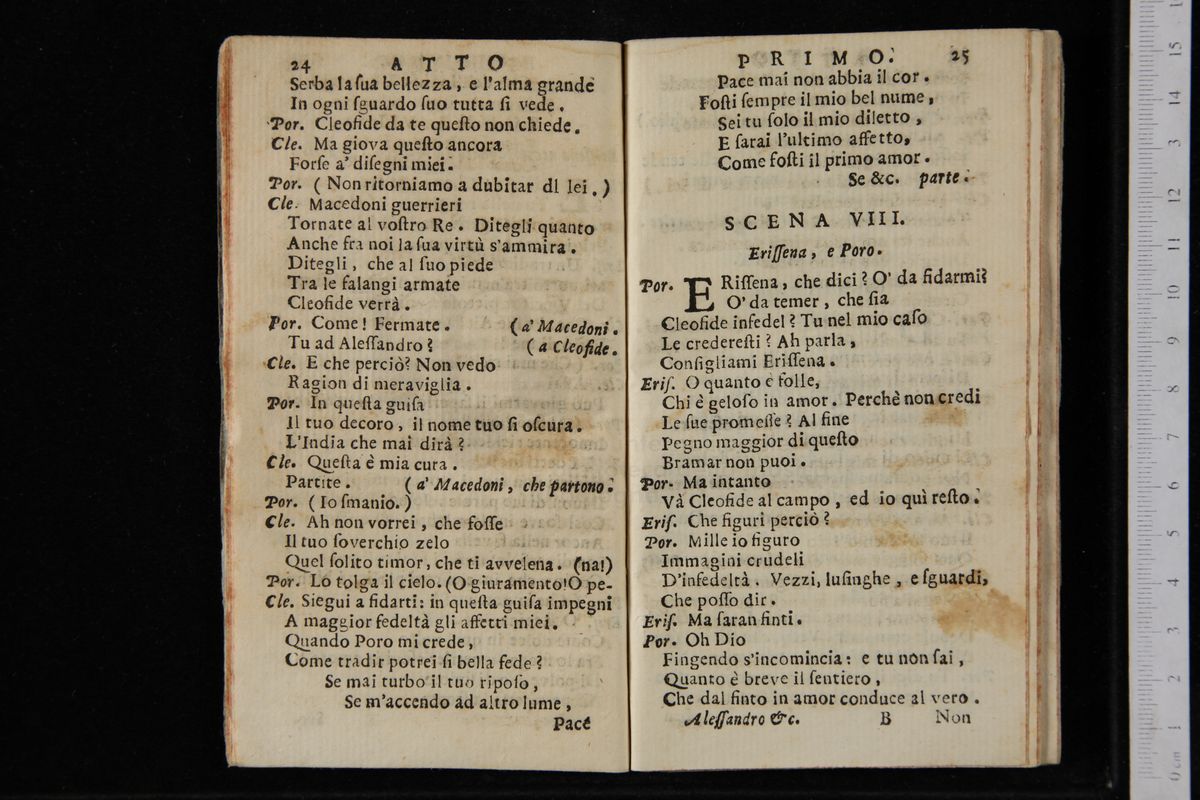 24 ATTO
Serba la ſua bellezza, e l'alma grande
In ogni ſguardo ſuo tutta ſi vede.
Por. Cleofide da te queſto non chiede.
Cle. Ma giova queſto ancora
Forſe a' diſegni miei.
Por. (Non ritorniamo a dubitar di lei.)
Cle. Macedoni guerrieri
Tornate al voſtro Re. Ditegli quanto
Anche fra noi la ſua virtù s'ammira.
Ditegli, che al ſuo piede
Tra le falangi armate
Cleofide verrà.
Por. Come! Fermate. (a' Macedoni.
Tu ad Aleſſandro? (a Cleofide.
Cle. E che perciò? Non vedo
Ragion di meraviglia.
Por. In queſta guiſa
Il tuo decoro, il nome tuo ſi oſcura.
L'India che mai dirà?
Cle. Queſta è mia cura.
Partite. (a' Macedoni, che partono.
Por. (Io ſmanio.)
Cle. Ah non vorrei, che foſſe
Il tuo ſoverchio zelo
Quel ſolito timor, che ti avvelena. (na!)
Por. Lo tolga il cielo. (O giuramento! O pe-
Cle. Siegui a fidarti: in queſta guiſa impegni
A maggior fedeltà gli affetti miei.
Quando Poro mi crede,
Come tradir potrei ſi bella fede?
Se mai turbo il tuo ripoſo,
Se m'accendo ad altro lume,
Pace
PRIMO. 25
Pace mai non abbia il cor.
Foſti ſempre il mio bel nume,
Sei tu ſolo il mio diletto,
E ſarai l'ultimo affetto,
Come foſti il primo amor.
Se &c. parte.
SCENA VIII.
Eriſſena, e Poro.
Por. ERiſſena, che dici? O' da fidarmi?
O' da temer, che ſia
Cleofide infedel? Tu nel mio caſo
Le crederefti? Ah parla,
Configliami Eriſſena.
Eriſ. O quanto è folle,
Chi è geloſo in amor. Perchè non credi
Le ſue promeſſe? Al fine
Pegno maggior di queſto
Bramar non puoi.
Por. Ma intanto
Và Cleofide al campo, ed io quì reſto.
Eriſ. Che figuri perciò?
Por. Mille io figuro
Immagini crudeli
D'infedeltà. Vezzi, luſinghe, e ſguardi,
Che poſſo dir.
Eriſ. Ma ſaran finti.
Por. Oh Dio
Fingendo s'incomincia: e tu non ſai,
Quanto è breve il ſentiero,
Che dal finto in amor conduce al vero.
Aleſſandro &c. B Non